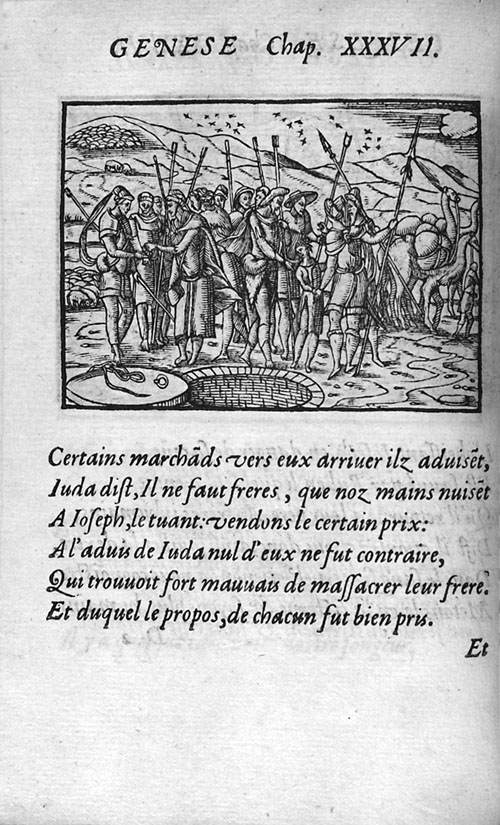 GENESE Chap. XXXVII.
Certains marchãds vers eux arriuer ilz aduisẽt,
Iuda diſt, Il ne faut freres, que noz mains nuisẽt
A Ioseph, le tuant: vendons le certain prix:
A l'aduis de Iuda nul d'eux ne fut contraire,
Qui trouuoit fort mauuais de maſſacrer leur frere.
Et duquel le propos, de chacun fut bien pris.
Et